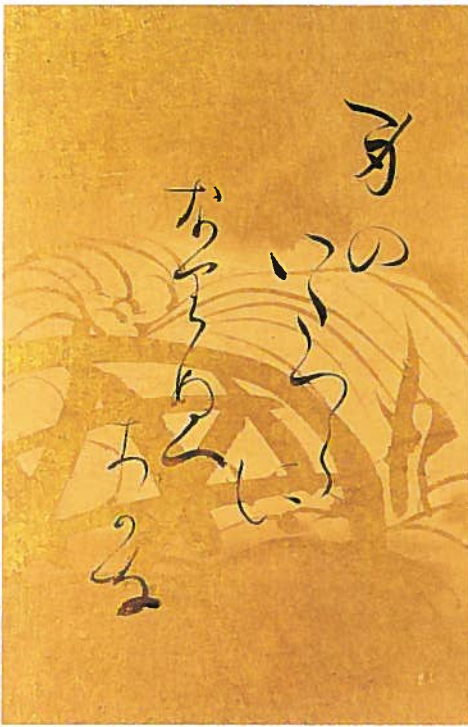 身の
いたつら
に
なりぬへ
きかな